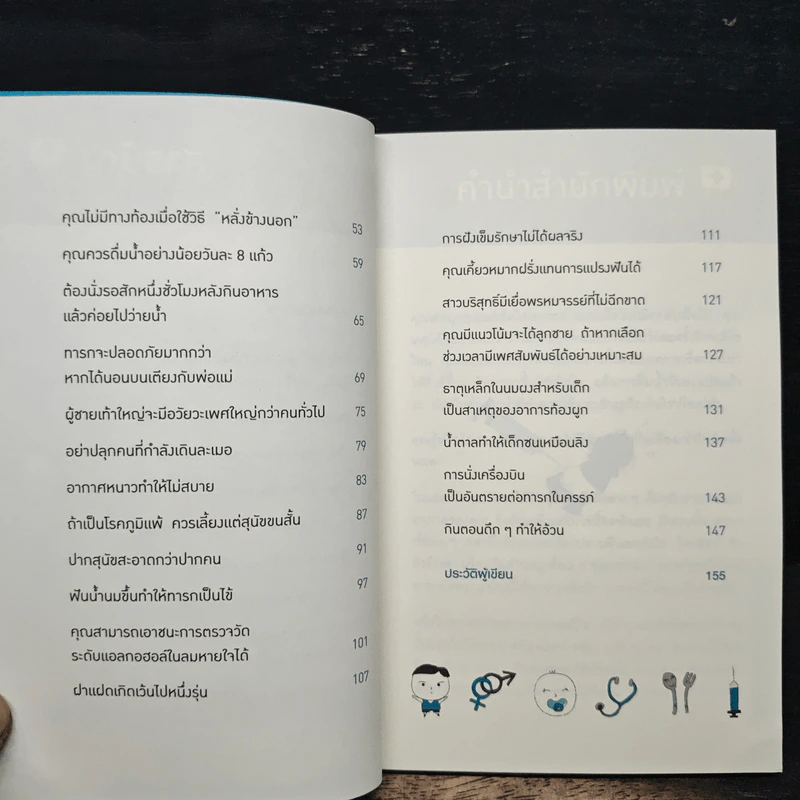 คุณไม่มีทางท้องเมื่อใช้วิธี "หลั่งข้างนอก" 53
คุณควรดื่มน้ำอย่างน้อยวันละ 8 แก้ว 59
ต้องนั่งรอสักหนึ่งชั่วโมงหลังกินอาหาร
แล้วค่อยไปว่ายน้ำ 65
ทารกจะปลอดภัยมากกว่า
หากได้นอนบนเตียงกับพ่อแม่ 69
ผู้ชายเท้าใหญ่จะมีอวัยวะเพศใหญ่กว่าคนทั่วไป 75
อย่าปลุกคนที่กำลังเดินละเมอ 79
อากาศหนาวทำให้ไม่สบาย 83
ถ้าเป็นโรคภูมิแพ้ ควรเลี้ยงแต่สุนัขขนสั้น 87
ปากสุนัขสะอาดกว่าปากคน 91
ฟันน้ำนมขึ้นทำให้ทารกเป็นไข้ 97
คุณสามารถเอาชนะการตรวจวัด
ระดับแอลกอฮอล์ในลมหายใจได้ 101
ฝาแฝดเกิดเว้นไปหนึ่งรุ่น 107
คำนำสำนักพิมพ์
การฝังเข็มรักษาไม่ได้ผลจริง 111
คุณเคี้ยวหมากฝรั่งแทนการแปรงฟันได้ 117
สาวบริสุทธิ์มีเยื่อพรหมจารรย์ที่ไม่ฉีกขาด 121
คุณมีแนวโน้มจะได้ลูกชาย ถ้าหากเลือก
ช่วงเวลามีเพศสัมพันธ์ได้อย่างเหมาะสม 127
ธาตุเหล็กในนมผงสำหรับเด็ก
เป็นสาเหตุของอาการท้องผูก 131
น้ำตาลทำให้เด็กซนเหมือนลิง 137
การนั่งเครื่องบิน
เป็นอันตรายต่อทารกในครรภ์ 143
กินตอนดึก ๆ ทำให้อ้วน 147
ประวัติผู้เขียน 155